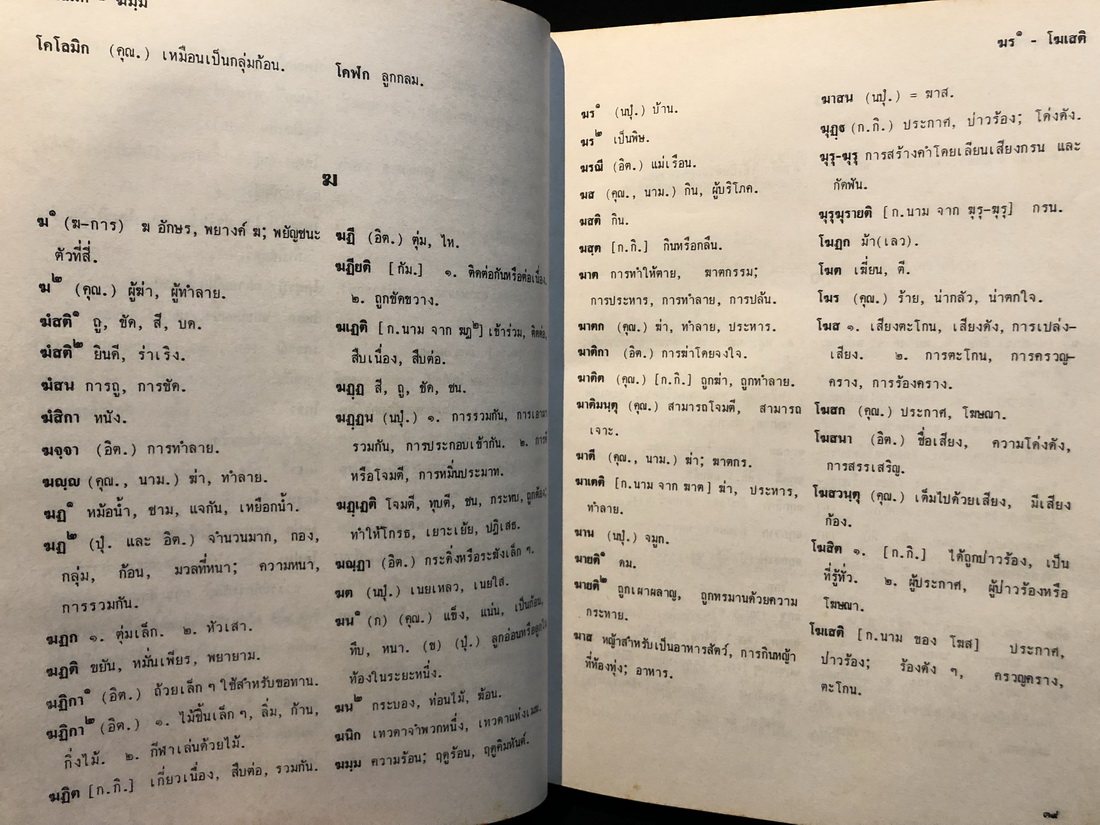 - ฆมฺม
โคโลมิก (คุณ.) เหมือนเป็นกลุ่มก้อน.
โคฬก ลูกกลม.
ฆ
ฆ๑ (ฆ-การ) ฆ อักษร, พยางค์ ฆ; พยัญชนะ
ตัวที่สี่.
ฆ๒ (คุณ.) ผู้ฆ่า, ผู้ทำลาย.
ฆํสติ๑ ถู, ขัด, สี, บด.
ฆํสติ๒ ยินดี, ร่าเริง.
ฆํสน การถู, การขัด.
ฆํสิกา หนัง.
ฆจฺจา (อิต.) การทำลาย.
ฆญฺญ (คุณ., นาม.) ฆ่า, ทำลาย.
ฆฏ๑ หม้อน้ำ, ชาม, แจกัน, เหยือกน้ำ.
ฆฏ๒ (ปุํ. และ อิต.) จำนวนมาก, กอง,
กลุ่ม, ก้อน, มวลที่หนา; ความหนา,
การรวมกัน.
ฆฏก ๑. ตุ่มเล็ก. ๒. หัวเสา.
ฆฏติ ขยัน, หมั่นเพียร, พยายาม.
ฆฏิกา๑ (อิต.) ถ้วยเล็ก ๆ ใช้สำหรับขอทาน.
ฆฏิกา๒ (อิต.) ๑. ไม้ชิ้นเล็ก ๆ, ลิ่ม, ก้าน,
กิ่งไม้. ๒. กีฬาเล่นด้วยไม้.
ฆฏิต [ก.กิ.] เกี่ยวเนื่อง, สืบต่อ, รวมกัน.
ฆฏี (อิต.) ตุ่ม, ไห.
ฆฏียติ [กัม.] ๑. ติดต่อกันหรือต่อเนื่อง,
๒. ถูกขัดขวาง.
ฆเฏติ [ก.นาม จาก ฆฏ๒] เข้าร่วม, ติดต่อ,
สืบเนื่อง, สืบต่อ.
ฆฏฺฏ สี, ถู, ขัด, ชน.
ฆฏฺฏน (นปุํ.) ๑. การรวมกัน, การเอามา
รวมกัน, การประกอบเข้ากัน. ๒. การตี
หรือโจมตี, การหมิ่นประมาท.
ฆฏฺเฏติ โจมตี, ทุบตี, ชน, กระทบ, ถูกต้อง;
ทำให้โกรธ, เยาะเย้ย, ปฏิเสธ.
ฆณฺฏา (อิต.) กระดิ่งหรือระฆังเล็ก ๆ.
ฆต (นปุํ.) เนยเหลว, เนยใส.
ฆน๑ (ก) (คุณ.) แข็ง, แน่น, เป็นก้อน,
ทึบ, หนา. (ข) (ปุํ.) ลูกอ่อนหรือลูกใน
ท้องในระยะหนึ่ง.
ฆน๒ กระบอง, ท่อนไม้, ฆ้อน.
ฆนิก เทวดาจำพวกหนึ่ง, เทวดาแห่งเมฆ.
ฆมฺม ความร้อน; ฤดูร้อน, ฤดูคิมหันต์.
ฆร๑ - โฆเสติ
ฆร๑ (นปุํ.) บ้าน.
ฆร๒ เป็นพิษ.
ฆรณี (อิต.) แม่เรือน.
ฆส (คุณ., นาม.) กิน, ผู้บริโภค.
ฆสติ กิน.
ฆสฺต [ก.กิ.] กินหรือกลืน.
ฆาต การทำให้ตาย, ฆาตกรรม;
การประหาร, การทำลาย, การปล้น.
ฆาตก (คุณ.) ฆ่า, ทำลาย, ประหาร.
ฆาติกา (อิต.) การฆ่าโดยจงใจ.
ฆาติต (คุณ.) [ก.กิ.] ถูกฆ่า, ถูกทำลาย.
ฆาติมนฺตุ (คุณ.) สามารถโจมตี, สามารถ
เจาะ.
ฆาตี (คุณ., นาม.) ฆ่า; ฆาตกร.
ฆาเตติ [ก.นาม จาก ฆาต] ฆ่า, ประหาร,
ทำลาย.
ฆาน (นปุํ.) จมูก.
ฆายติ๑ ดม.
ฆายติ๒ ถูกเผาผลาญ, ถูกทรมานด้วยความ
กระหาย.
ฆาส หญ้าสำหรับเป็นอาหารสัตว์, การกินหญ้า
ที่ท้องทุ่ง; อาหาร.
ฆาสน (นปุํ.) = ฆาส.
ฆุฏฺฐ (ก.กิ.) ประกาศ, ป่าวร้อง; โด่งดัง.
ฆุรุ-ฆุรุ การสร้างคำโดยเลียนเสียงกรน และ
กัดฟัน.
ฆุรุฆุรายติ [ก.นาม จาก ฆุรุ-ฆุรุ] กรน.
โฆฏก ม้า(เลว).
โฆต เฆี่ยน, ตี.
โฆร (คุณ.) ร้าย, น่ากลัว, น่าตกใจ.
โฆส ๑. เสียงตะโกน, เสียงดัง, การเปล่ง-
เสียง. ๒. การตะโกน, การครวญ-
คราง, การร้องคราง.
โฆสก (คุณ.) ประกาศ, โฆษณา.
โฆสนา (อิต.) ชื่อเสียง, ความโด่งดัง,
การสรรเสริญ.
โฆสวนฺตุ (คุณ.) เต็มไปด้วยเสียง, มีเสียง
ก้อง.
โฆสิต ๑. [ก.กิ.] ได้ถูกป่าวร้อง, เป็น
ที่รู้ทั่ว. ๒. ผู้ประกาศ, ผู้ป่าวร้องหรือ
โฆษณา.
โฆเสติ [ก.นาม ของ โฆส] ประกาศ,
ป่าวร้อง; ร้องดัง ๆ, ครวญคราง,
ตะโกน.